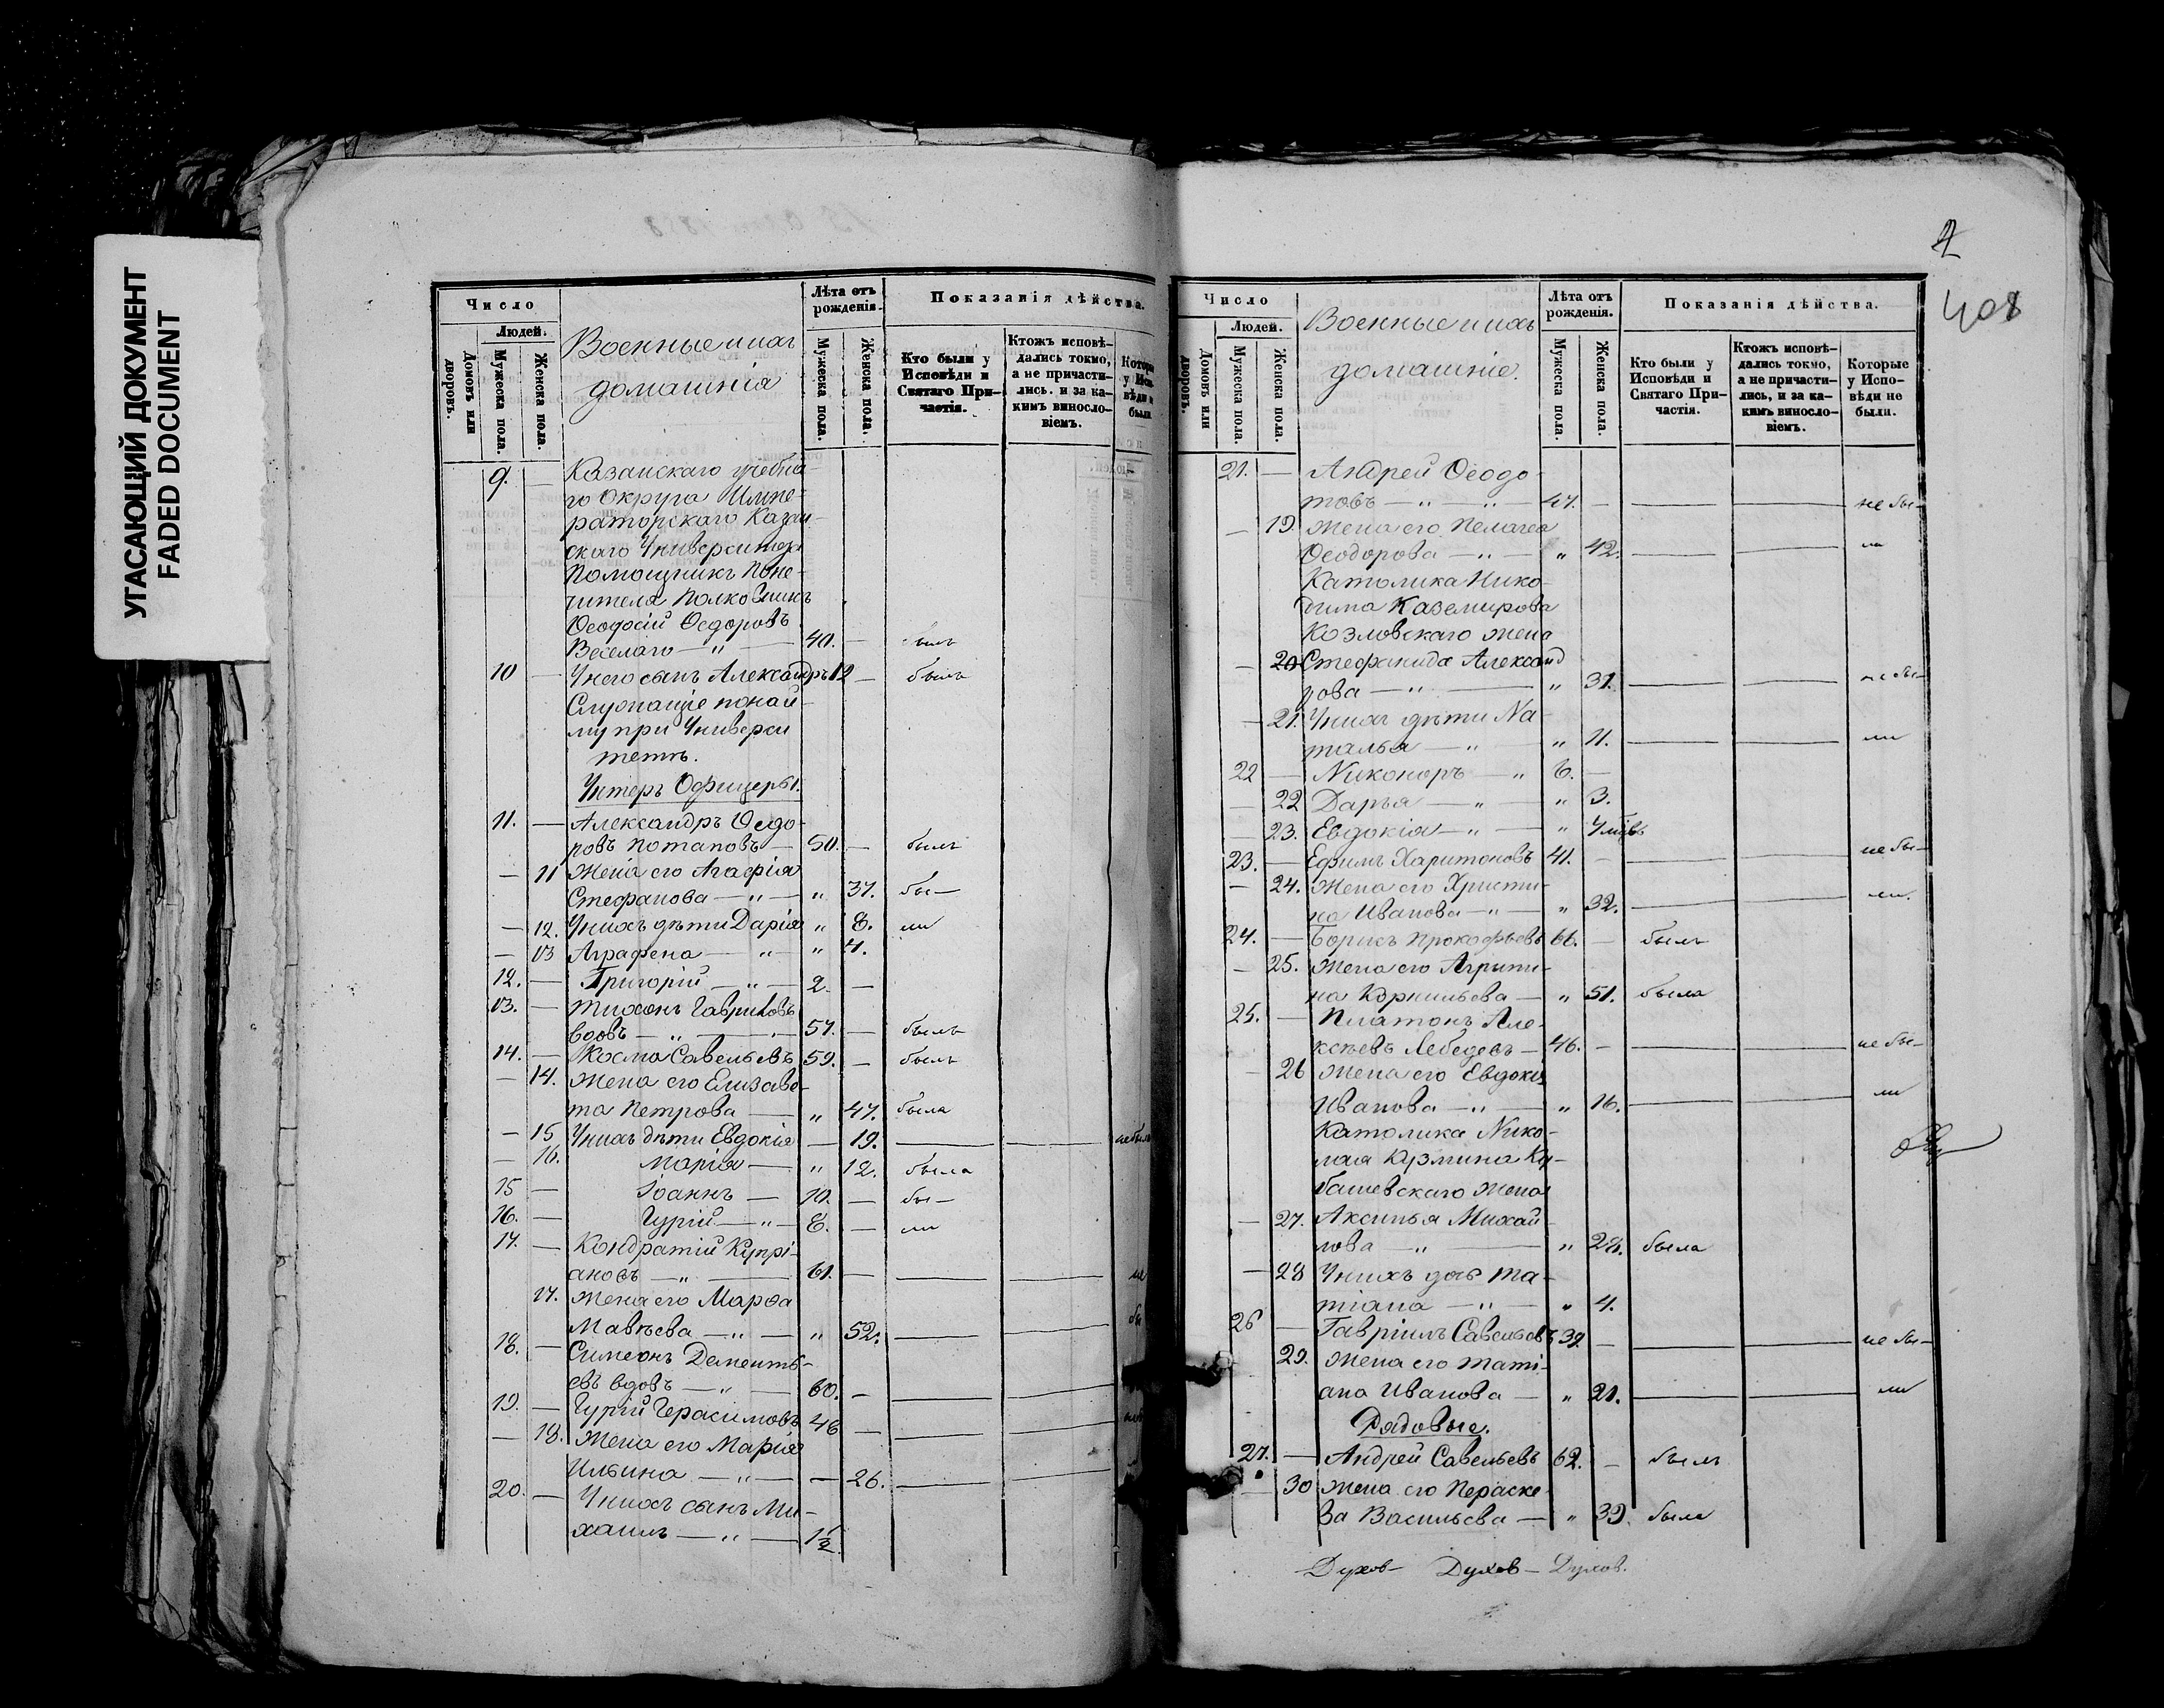 УГАСАЮЩИЙ ДОКУМЕНТ
FADED DOCUMENT
Число
Людей.
Домовъ или дворовъ.
Мужеска пола.
Женска пола.
Военные и ихъ
домашнія
Лѣта отъ рожденія.
Мужеска пола.
Женска пола.
Показанія дѣйства.
Кто были у Исповѣди и Святаго Причастія.
Ктожъ исповѣдались токмо, а не причастились. и за какимъ винословіемъ.
9. — Казанскаго учебна-
го Округа Импе-
раторскаго Казан-
скаго Университета
Помощникъ Попе-
чителя Полковникъ
Ѳеофсій Ѳедоровъ
Веселаго — „ — 40. — былъ
10 — У него сынъ Александръ 12 — былъ
Служащіе по най-
му при Универси
тетѣ.
Унтеръ Офицеры.
11. — Александръ Ѳедо-
ровъ Потаповъ — 50. — былъ
— 11 Жена его Агафія
Стефанова — „ — „ 37. бы—
— 12. У нихъ дѣти Дарія „ 8. ли
— 13 Аграфена — „ — „ 4.
12. — Григорій — „ — 2. —
13. — Тихонъ Гавриловъ
вдовъ — „ — 57. — былъ
14. — Косма Савельевъ 59. — былъ
— 14. Жена его Елизаве-
та Петрова — „ 47. была
— 15 У нихъ дѣти Евдокія — 19. — — не была
— 16. Марія — „ 12. была
15 — Іоаннъ — 10. — бы—
16. — Гурій — „ — 8. — ли
17. — Кондратій Купрі-
ановъ — „ — 61. — — — не
17. Жена его Марѳа
Мавѣева — „ — „ 52. — — бы
18. — Симеонъ Дементь-
евъ вдовъ — „ — 60. — — —
19. — Гурій Герасимовъ 46 — — —
— 18. Жена его Марія
Ильина — „ — — 26. —
20. — У нихъ сынъ Ми-
хаилъ — „ — 1½
2
408
Число
Людей.
Домовъ или дворовъ.
Мужеска пола.
Женска пола.
Военные и ихъ
домашніе.
Лѣта отъ рожденія.
Мужеска пола.
Женска пола.
Показанія дѣйства.
Кто были у Исповѣди и Святаго Причастія.
Ктожъ исповѣдались токмо, а не причастились, и за какимъ винословіемъ.
Которые у Исповѣди не были.
21. — Андрей Ѳеодо-
товъ — „ — 47. — — — не бы—
— 19 Жена его Пелагея
Ѳеодорова — „ — „ 42. — — ли
Католика Нико-
дима Каземирова
Козловскаго жена
— 20 Стефанида Александ
рова — „ — „ 31. — — не бы—
— 21. У нихъ дѣти На-
талья — „ — „ 11. — — ли
22 — Никоноръ — „ 6. —
— 22 Дарья — „ — „ 3.
— 23. Евдокія — „ — „
23. — Ефимъ Харитоновъ 41. — — — не бы—
— 24. Жена его Христи-
на Иванова — „ — „ 32. — — ли.
24. — Борисъ Прокофьевъ 66. — былъ
— 25. Жена его Агрипи-
на Корнильева — „ 51. была
25. — Платонъ Але-
ксѣевъ Лебедевъ — 46. — — — не бы—
— 26 Жена его Евдокія
Иванова — „ — „ 16. — — ли
Католика Нико-
лая Кузмина Ку-
башевскаго жена
— 27. Аксинья Михай-
лова — „ — „ 28. была
— 28 У нихъ дочь Та-
тіана — „ — „ 4.
26 — Гавріилъ Савельевъ 39. — — — не бы—
29. Жена его Таті-
ана Иванова — „ 21. — — ли
Рядовые.
27. — Андрей Савельевъ 62. — былъ
— 30 Жена его Параске-
ва Васильева — „ 39. была
Духов— Духов— Духов.